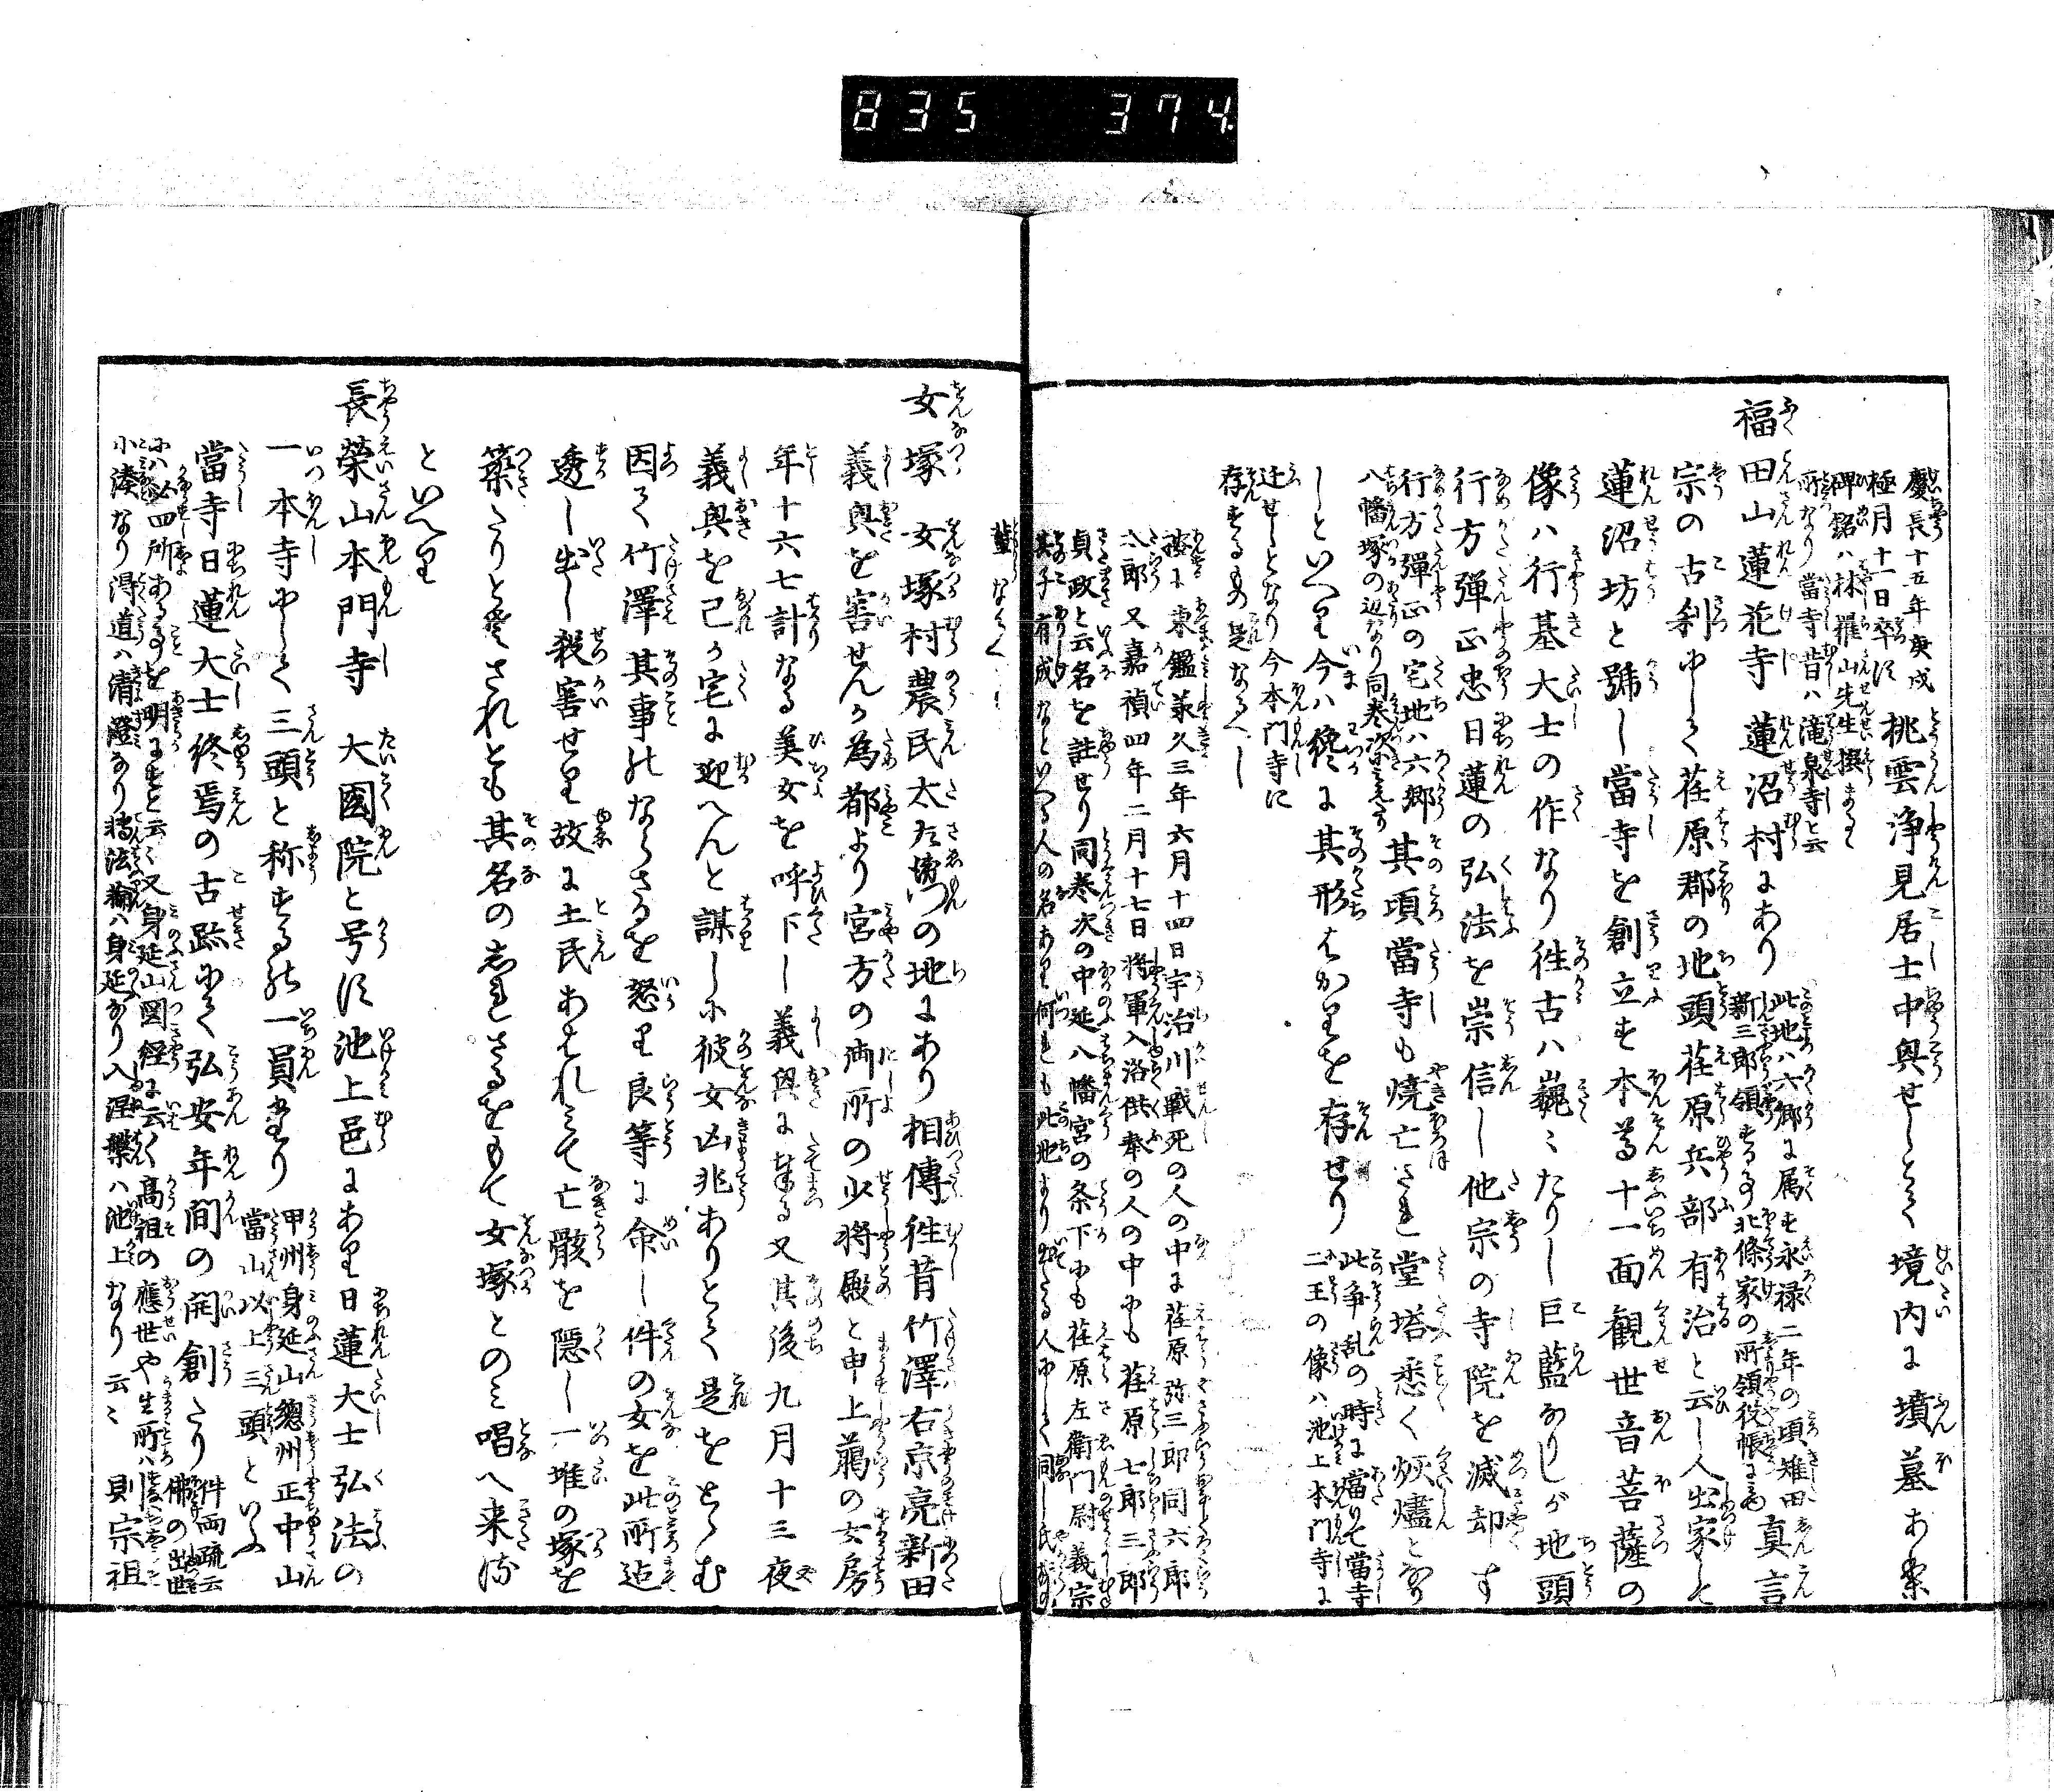 835 374
慶長十五年庚戌
極月十一日卒す 桃雲浄見居士中興せしとて境内に墳墓あり
碑銘ハ林羅山先生撰
所なり當寺昔ハ滝泉寺と云
福田山蓮花寺 蓮沼村にあり 此地ハ六郷に属す永禄二年の頃雉田
新三郎領する事北條家の所領役帳に 真言
宗の古刹にして荏原郡の地頭荏原兵部有治と云し人出家して
蓮沼坊と號し當寺を創立す本尊十一面観世音菩薩の
像ハ行基大士の作なり往古ハ巍々たりし巨藍なりしが地頭
行方彈正忠日蓮の弘法を崇信し他宗の寺院を滅却す
行方彈正の宅地ハ六郷
八幡塚の辺なり同巻次に 其頃當寺も焼亡され堂塔悉く灰燼となり
しといへり今ハ纔に其形ちかりを存せり 此争乱の時に當りて當寺
二王の像ハ池上本門寺に
迁せしとなり今本門寺に
存するもの是なるへし
按に東鑑承久三年六月十四日宇治川戰死の人の中に荏原弥三郎同六郎
六郎又嘉禎四年二月十七日将軍入洛供奉の人の中にも荏原七郎三郎
貞政と云名を註せり同巻次の中延八幡宮の条下にも荏原左衛門尉義宗
其子有成なといへる人の名あり何れも此地より出たる人にして同し氏
なるへし
女塚 女塚村農民太左衛門の地にあり相傳往昔竹澤右京亮新田
義興を害せんか為都より宮方の御所の少将殿と申上﨟の女房
年十六七計なる美女を呼下し義興に奉る又其後九月十三夜
義興を己か宅に迎へんと謀しに彼女凶兆ありとて是をとゝむ
因て竹澤其事のならさるを怒り良等に命し件の女を此所迄
透し出し殺害せり故に土民あはれミて亡骸を隠し一堆の塚を
築たりと
されとも其名の志れさるをもて女塚とのミ唱へ来る
といへり
長榮山本門寺 大國院と号す池上邑にあり日蓮大士弘法の
一本寺にして三頭と称するの一員なり 甲州身延山總州正中山
當山以上三頭といふ
當寺日蓮大士終焉の古跡にて弘安年間の開創なり 件両疏云
佛の出世
にハ必四所あることを明にすと云云又身延山図経に云く高祖の應世や生所ハ
小湊なり得道ハ清澄なり轉法輪ハ身延なり入涅槃ハ池上なり云云 則宗祖